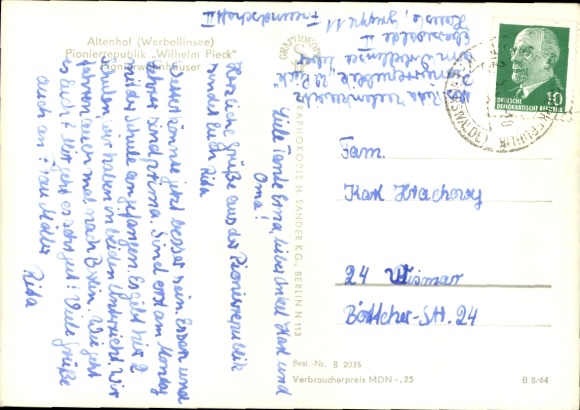 Altenhof (Werbellinsee)
Pionierrepublik „Wilhelm Pieck"
Pionierwohnhäuser
Liebe Tante Erna, lieber Onkel Karl und
Oma!
Herzliche Grüße aus der Pionierrepublik
sendet Euch Rita
Das könnte jetzt besser sein. Essen und
sind prima. Sind erst am Montag
mit der Schule angefangen. Es gibt hier 2
Schulen wir haben in beiden Unterricht. Wir
fahren auch mal nach Berlin. Wie geht
es Euch? Mir geht es sehr gut! Viele Grüße
auch an Frau Müller
Rita
Rita
Pionierrepublik „W. Pieck"
am Werbellinsee
Eberswalde II
Haus 6, Gruppe 11
Freundschaft II
H. SANDER K.G., BERLIN N 113
DEUTSCHE
DEMOKRATISCHE REPUBLIK
10
Fam.
Karl Hrachowy
24 Wismar
Böttcher-Str. 24
Best.-Nr. B 2035
Verbraucherpreis MDN -,25
B 8/64